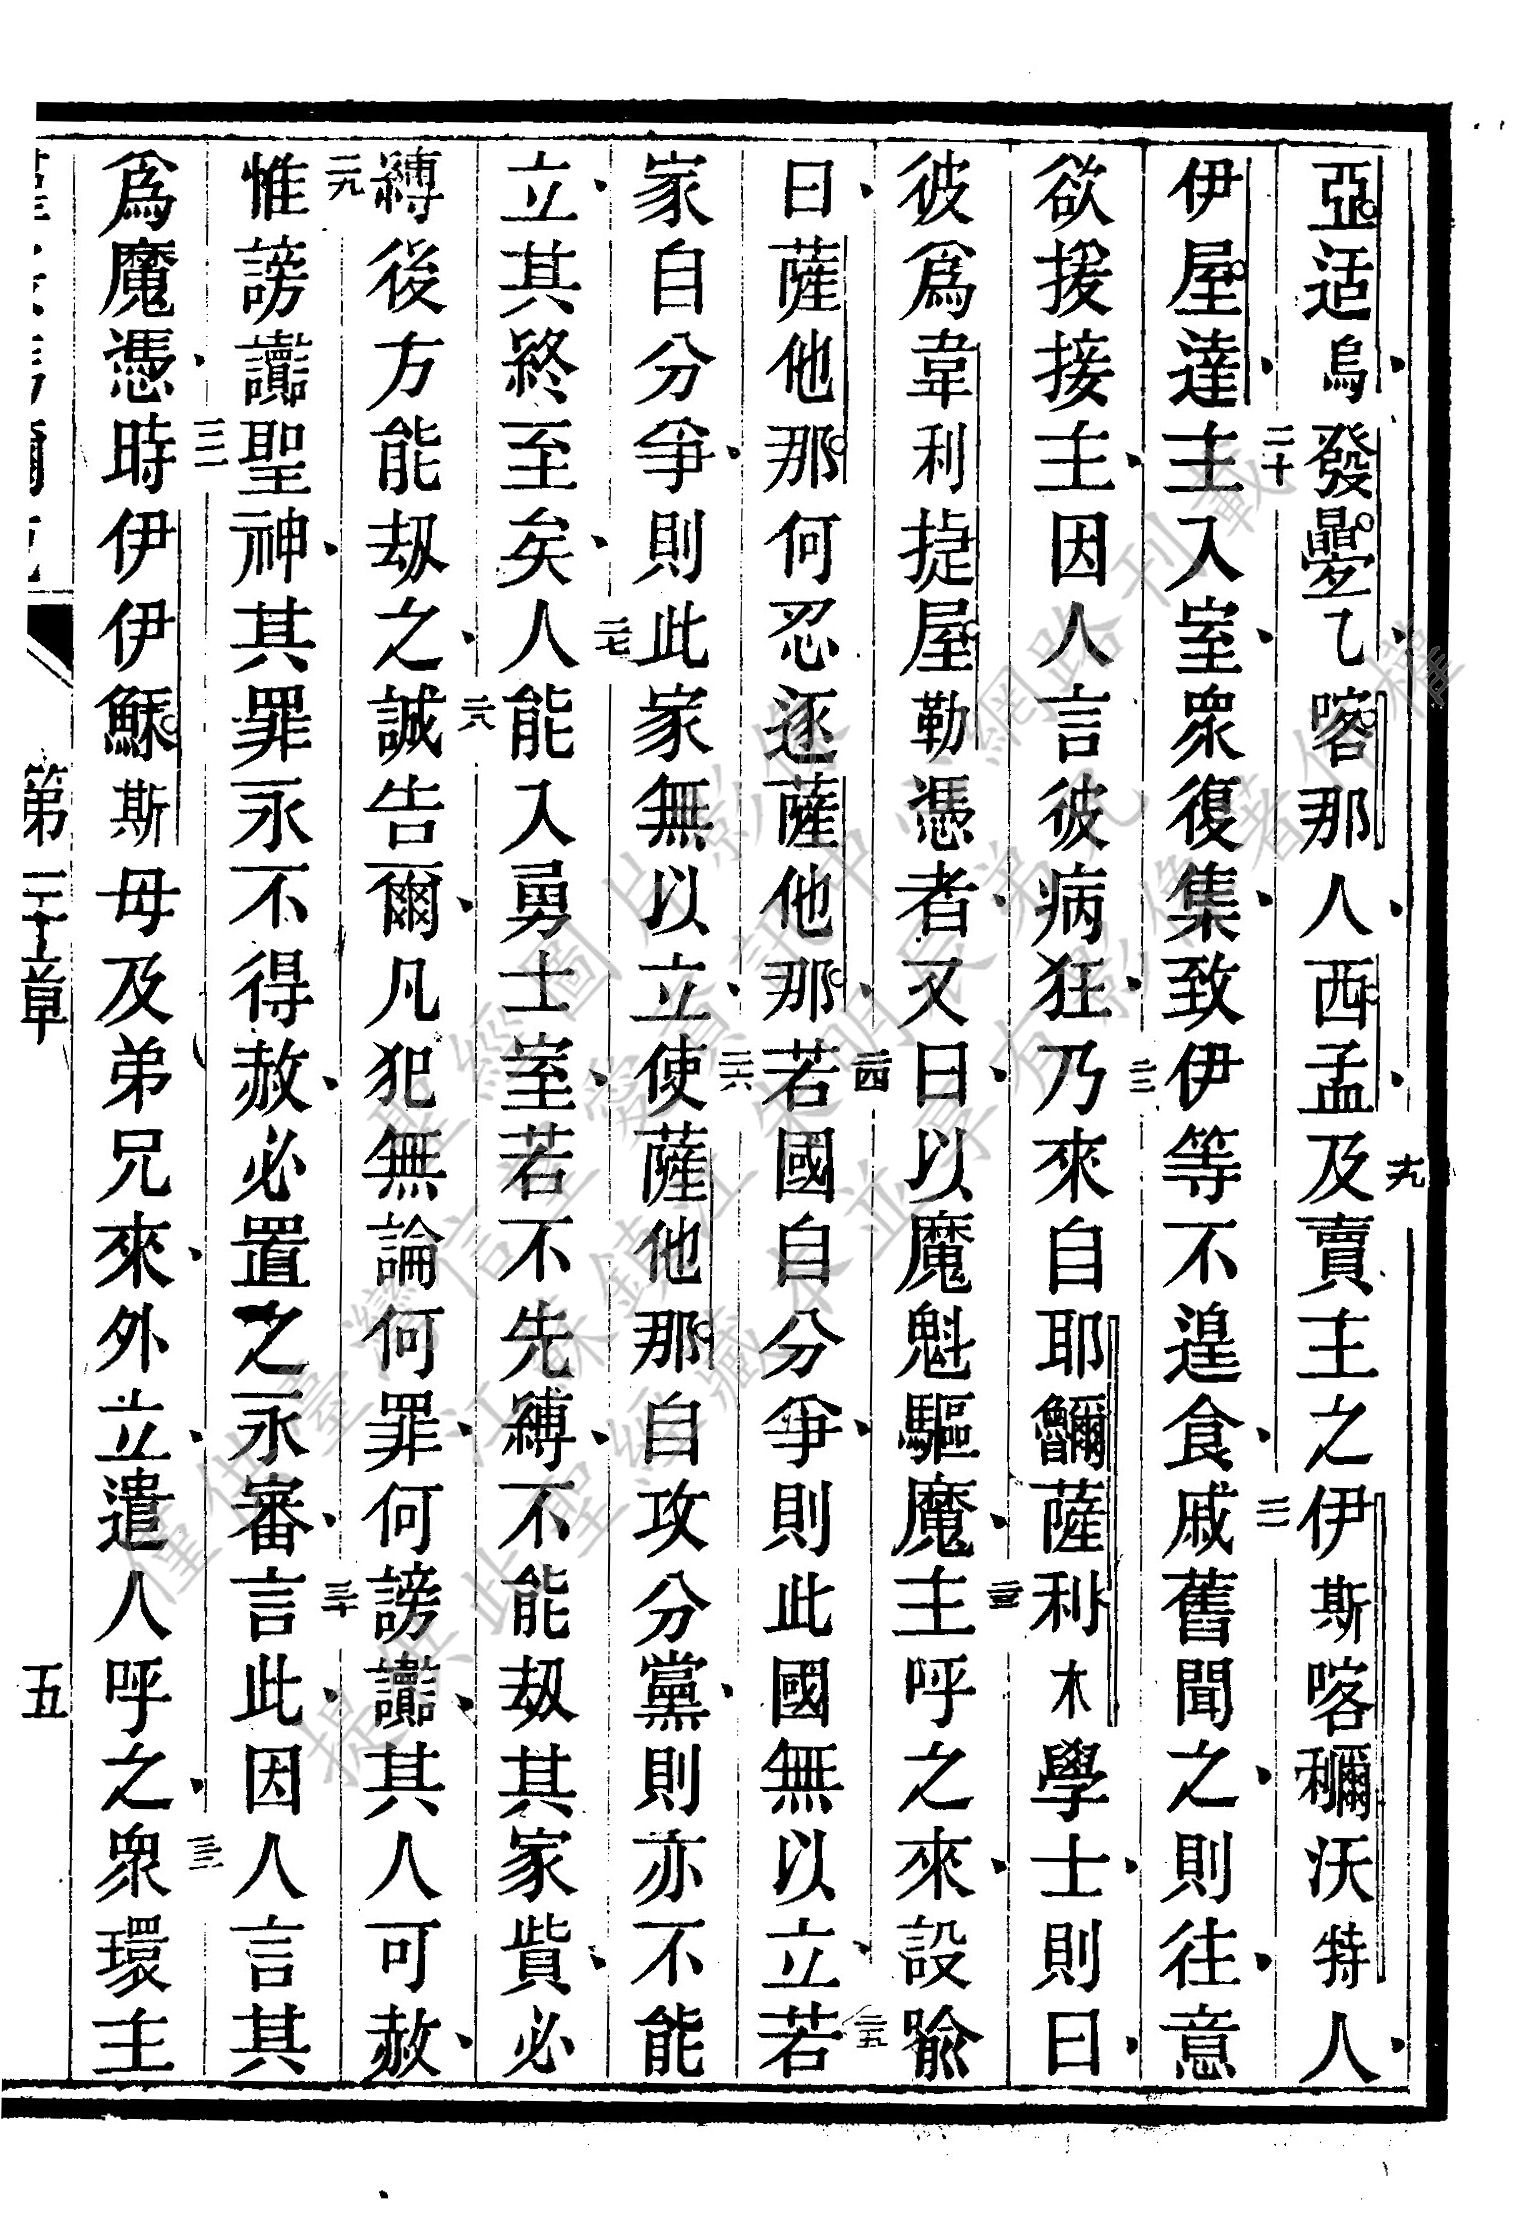 亞适烏發乙喀那人西孟十九及賣主之伊斯喀沃特人
伊屋達二十主入室衆復集致伊等不遑食二一戚舊聞之則往意
欲援接主因人言彼病狂二二乃來自耶薩利木學士則曰
彼爲韋利捷屋勒憑者又曰以魔魁驅魔二三主呼之來設喩
曰薩他那何忍逐薩他那二四若國自分爭則此國無以立二五若
家自分爭則此家無以立二六使薩他那自攻分黨則亦不能
立其終至矣二七人能入勇士室若不先縛不能刼其家貲必
縛後方能刼之二八誠告爾凡犯無論何罪何謗讟其人可赦
二九惟謗讟聖神其罪永不得赦必置之永審三十言此因人言其
爲魔憑三一時伊伊穌斯母及弟兄來外立遣人呼之三二衆環主
第三章 五
聖經圖片影像
僅供臺灣信望愛資訊中心網路刊載
提供此聖經藏本並享有影像著作權